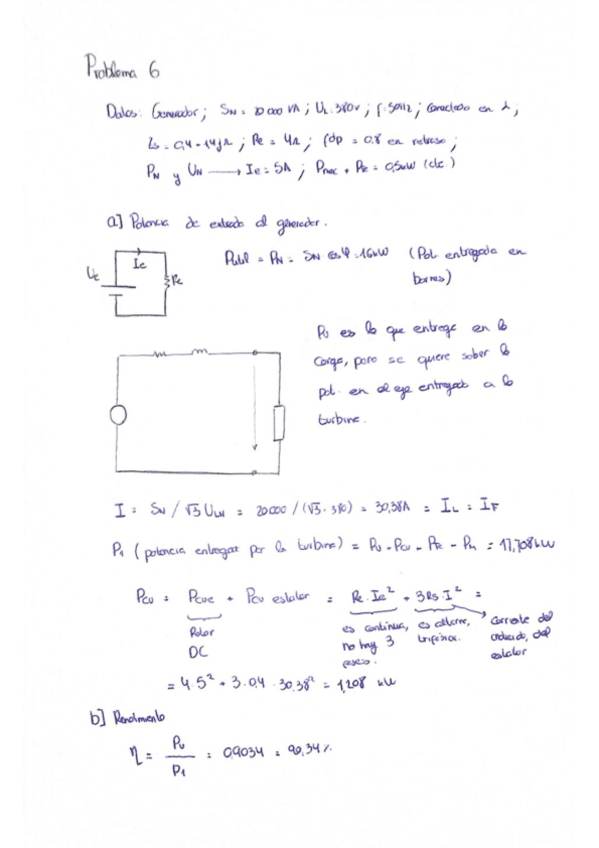 Problema 6
Datos: Generador; SN = 20000 VA; UL = 380V; f = 50Hz; Conectado en λ;
Zs = 0,4 + 14jΩ; Re = 4Ω; fdp = 0.8 en retraso;
PN y UN → Ie = 5A; Pmec + PFe = 0,5kW (cte.)
a] Potencia de entrada al generador.
Ue
Ie
Re
Pútil = PN = SN cosφ = 16kW (Pot. entregada en
bornes)
Pu es lo que entrega en la
carga, pero se quiere saber la
pot. en el eje entregada a la
turbina.
I = SN / √3 ULN = 20000 / (√3 · 380) = 30,38A = IL = IF
P1 (potencia entregada por la turbina) = Pu - Pcu - PFe - Pm = 17,708kW
Pcu = Pcue + Pcu estator = Re · Ie² + 3Rs · I² =
Rotor
DC
es continua,
no hay 3
fases.
es alterna,
trifásica.
Corriente del
inducido, del
estator
= 4·5² + 3·0,4 · 30,38² = 1,208 kW
b] Rendimiento
η = Pu / P1 = 0,9034 = 90,34%